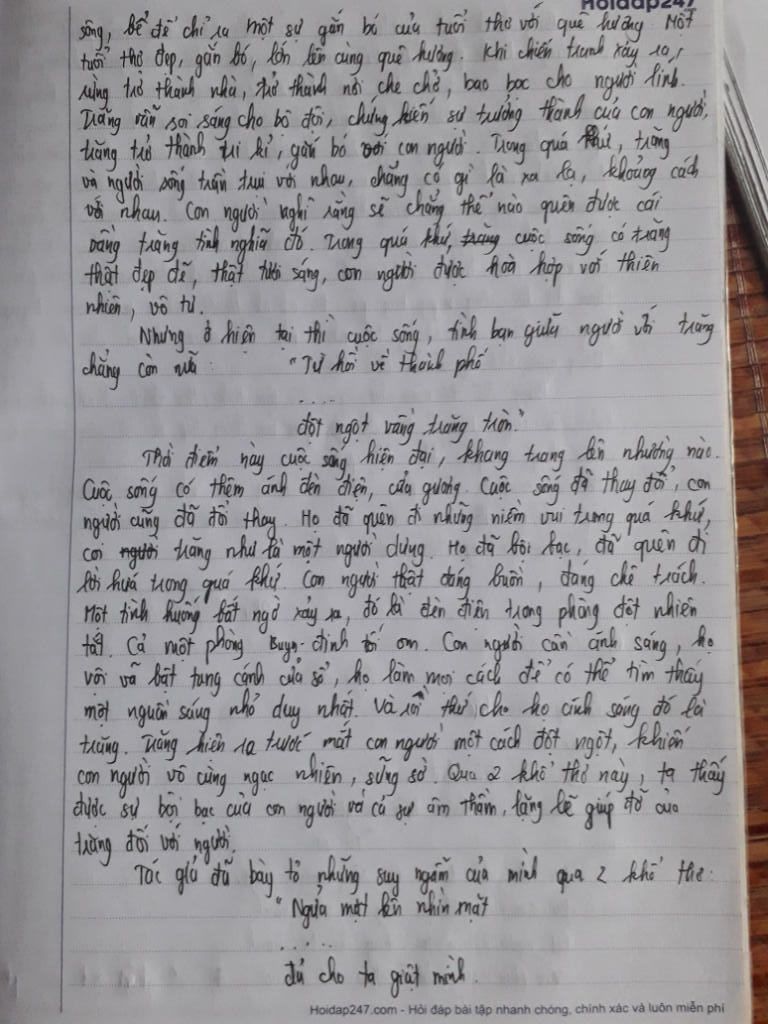 Hoidap247
sông, bể để chỉ ra một sự gắn bó của tuổi thơ với quê hương. Một
tuổi thơ đẹp, gắn bó, lớn lên cùng quê hương. Khi chiến tranh xảy ra,
rừng trở thành nhà, trở thành nơi che chở, bao bọc cho người lính.
Trăng vẫn soi sáng cho bộ đội, chứng kiến sự trưởng thành của con người,
trăng trở thành tri kỉ, gắn bó với con người. Trong quá khứ, trăng
và người sống trần trụi với nhau, chẳng có gì là xa lạ, khoảng cách
với nhau. Con người nghĩ rằng sẽ chẳng thể nào quên được cái
vầng trăng tình nghĩa đó. Trong quá khứ, trăng cuộc sống có trăng
thật đẹp đẽ, thật tươi sáng, con người được hoà hợp với thiên
nhiên, vô tư.
Nhưng ở hiện tại thì cuộc sống, tình bạn giữa người với trăng
chẳng còn nữa: "Từ hồi về thành phố
....
đột ngột vầng trăng tròn."
Thời điểm này cuộc sống hiện đại, khang trang lên nhường nào.
Cuộc sống có thêm ánh đèn điện, cửa gương. Cuộc sống đã thay đổi, con
người cũng đã đổi thay. Họ đã quên đi những niềm vui trong quá khứ,
coi người trăng như là một người dưng. Họ đã bội bạc, đã quên đi
lời hứa trong quá khứ. Con người thật đáng buồn, đáng chê trách.
Một tình huống bất ngờ xảy ra, đó là đèn điện trong phòng đột nhiên
tắt. Cả một phòng Buyn-đinh tối om. Con người cần ánh sáng, họ
vội vã bật tung cánh cửa sổ, họ làm mọi cách để có thể tìm thấy
một nguồn sáng nhỏ duy nhất. Và rồi thứ cho họ ánh sáng đó là
trăng. Trăng hiện ra trước mắt con người một cách đột ngột, khiến
con người vô cùng ngạc nhiên, sững sờ. Qua 2 khổ thơ này, ta thấy
được sự bội bạc của con người và cả sự âm thầm, lặng lẽ giúp đỡ của
trăng đối với người.
Tác giả đã bày tỏ những suy ngẫm của mình qua 2 khổ thơ:
"Ngửa mặt lên nhìn mặt
.....
đủ cho ta giật mình.
Hoidap247.com - Hỏi đáp bài tập nhanh chóng, chính xác và luôn miễn phí